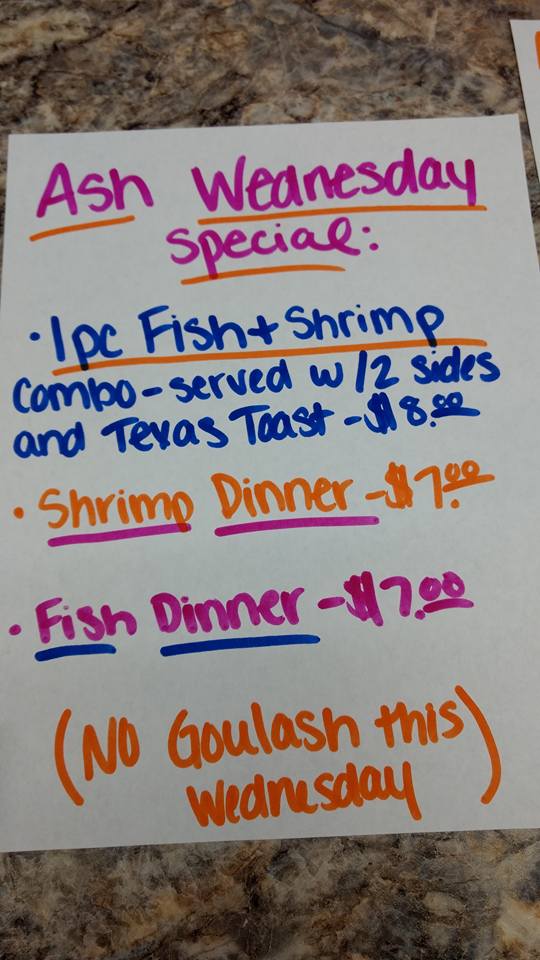 Ash Wednesday
Special:
• 1pc Fish + Shrimp
Combo - served w/2 sides
and Texas Toast - $8.00
• Shrimp Dinner - $7.00
• Fish Dinner - $7.00
(No Goulash this
Wednesday)